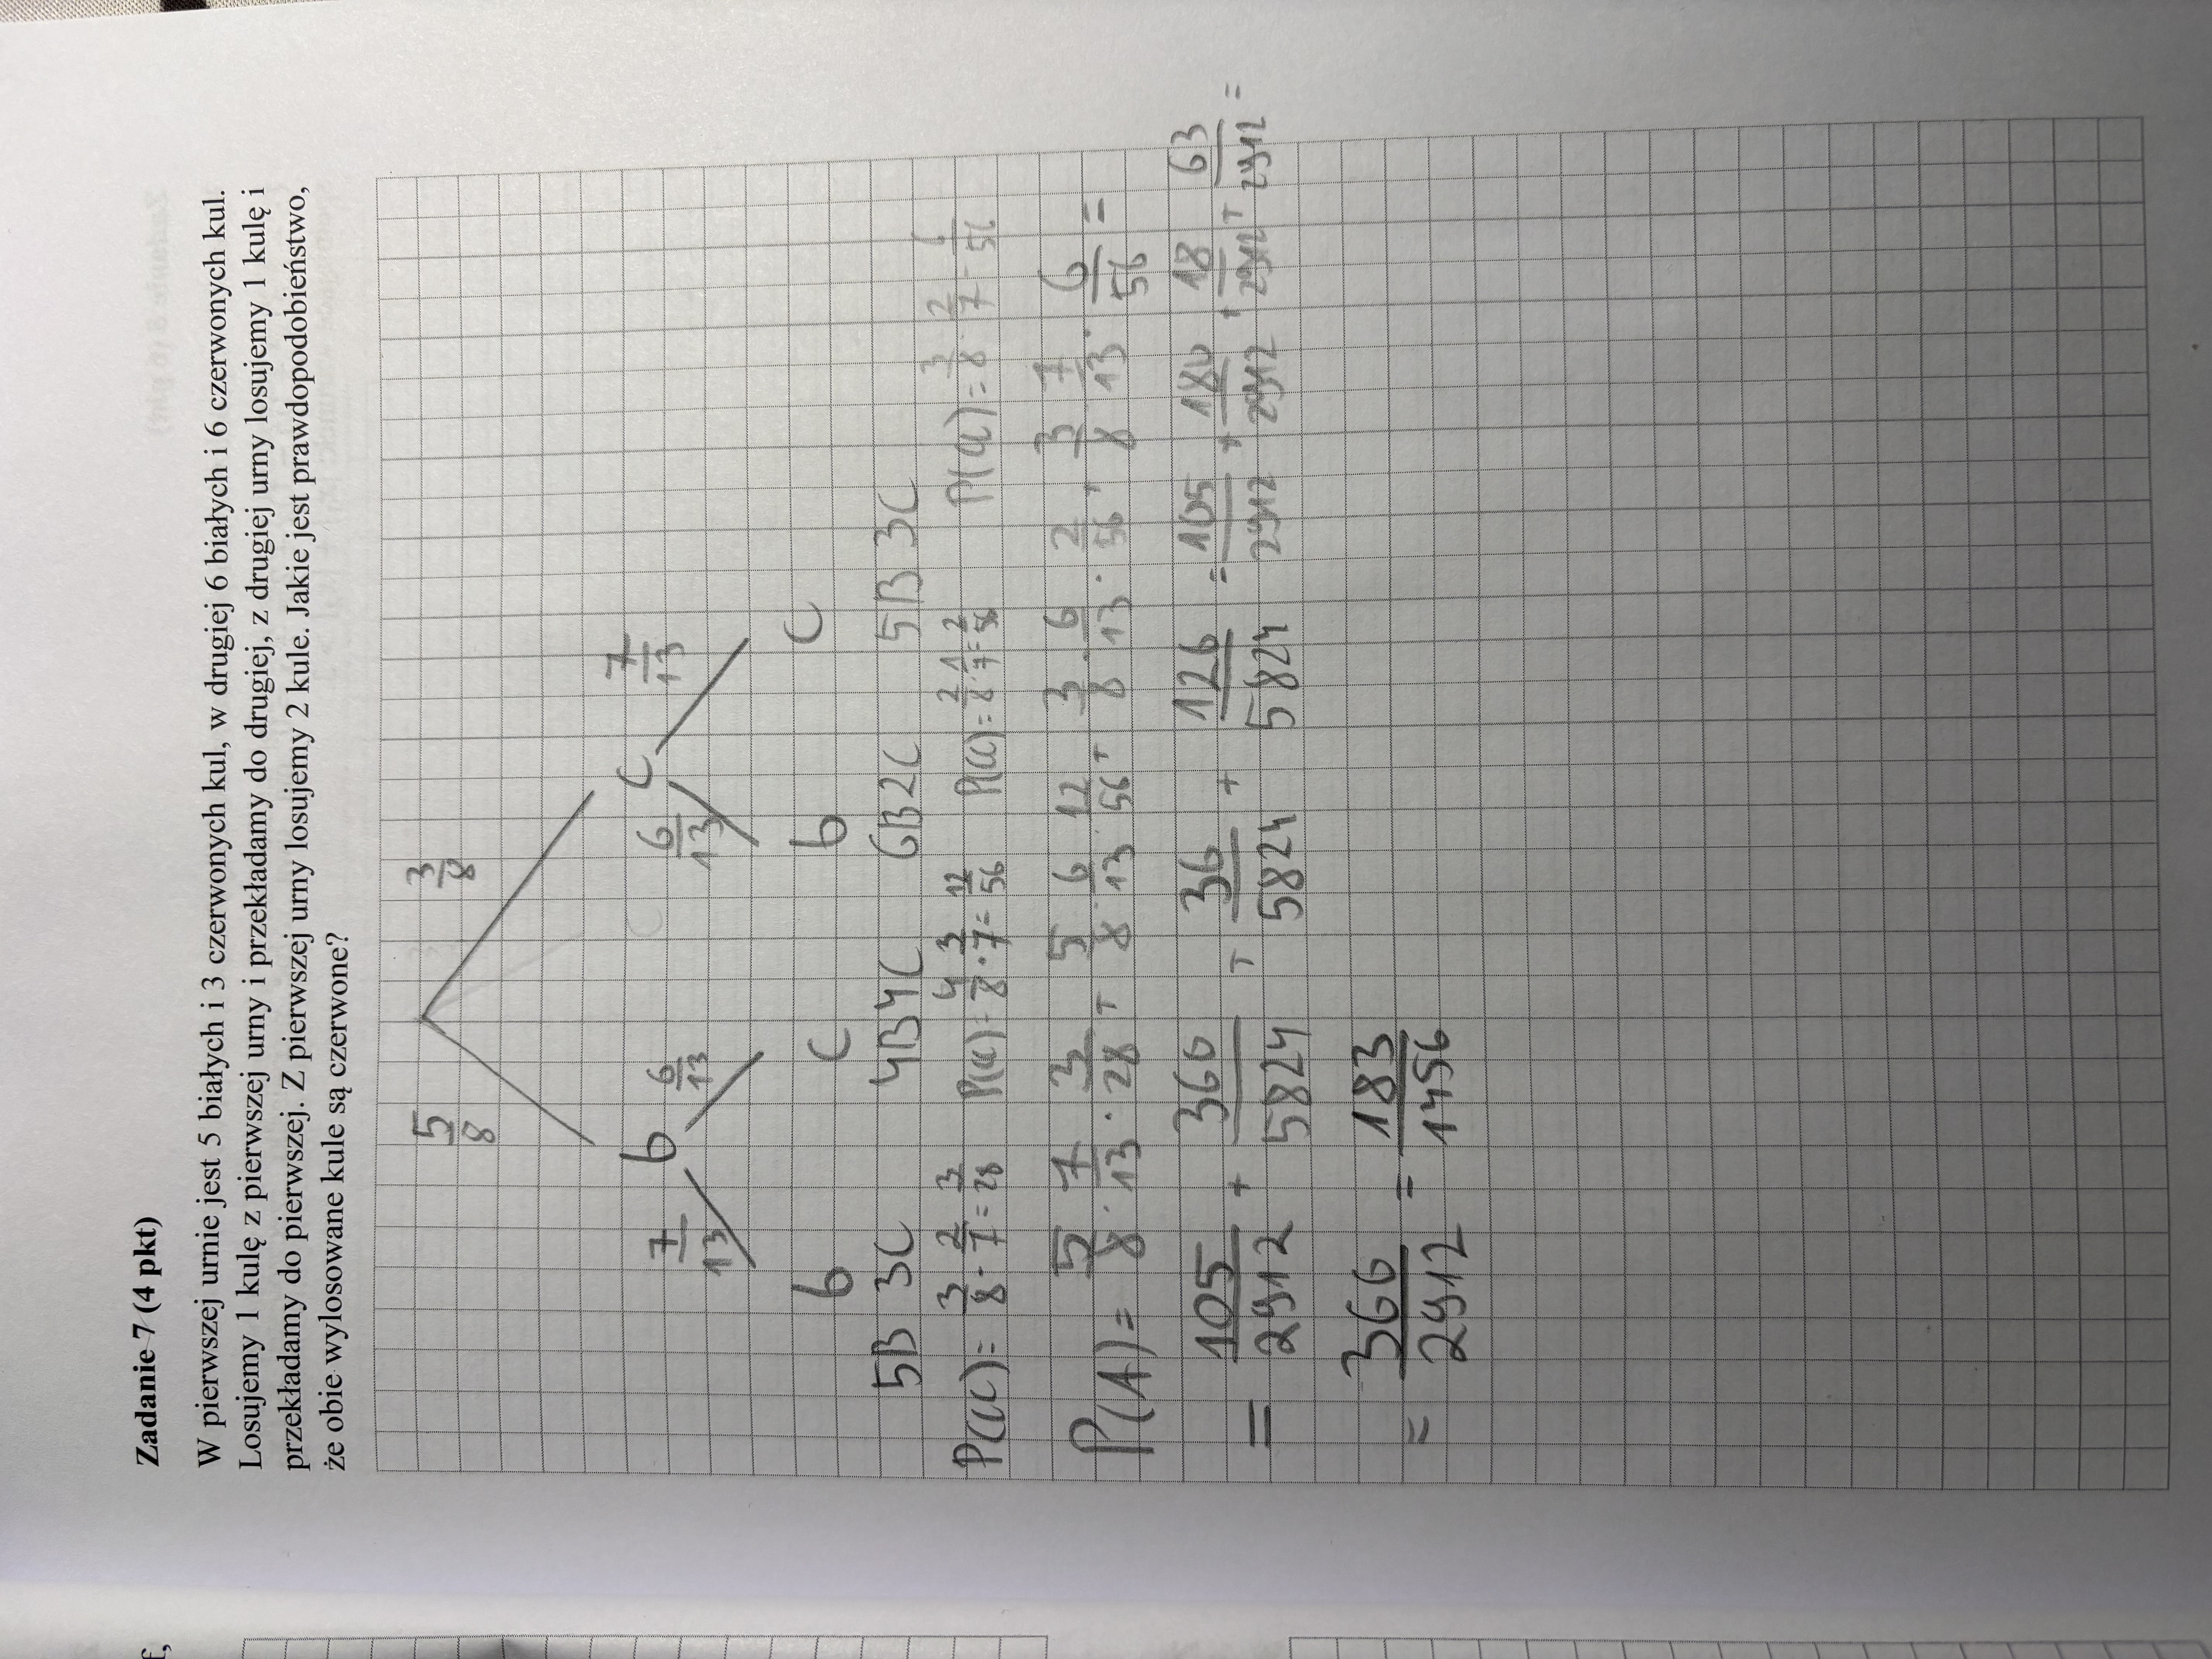 Zadanie 7 (4 pkt)
W pierwszej urnie jest 5 białych i 3 czerwonych kul, w drugiej 6 białych i 6 czerwonych kul.
Losujemy 1 kulę z pierwszej urny i przekładamy do drugiej, z drugiej urny losujemy 1 kulę i
przekładamy do pierwszej. Z pierwszej urny losujemy 2 kule. Jakie jest prawdopodobieństwo,
że obie wylosowane kule są czerwone?
5/8 3/8
b c
7/13 6/13 6/13 7/13
b c b c
5B 3C 4B4C 6B2C 5B 3C
P(cc)= 3/8 · 2/7 = 3/28 P(cc)= 4/8 · 3/7 = 12/56 P(cc)= 2/8 · 1/7 = 2/56 P(cc)= 3/8 · 2/7 = 6/56
P(A)= 5/8 · 7/13 · 3/28 + 5/8 · 6/13 · 12/56 + 3/8 · 6/13 · 2/56 + 3/8 · 7/13 · 6/56 =
= 105/2912 + 360/5824 + 36/5824 + 126/5824 = 105/2912 + 180/2912 + 18/2912 + 63/2912 =
= 366/2912 = 183/1456
f,